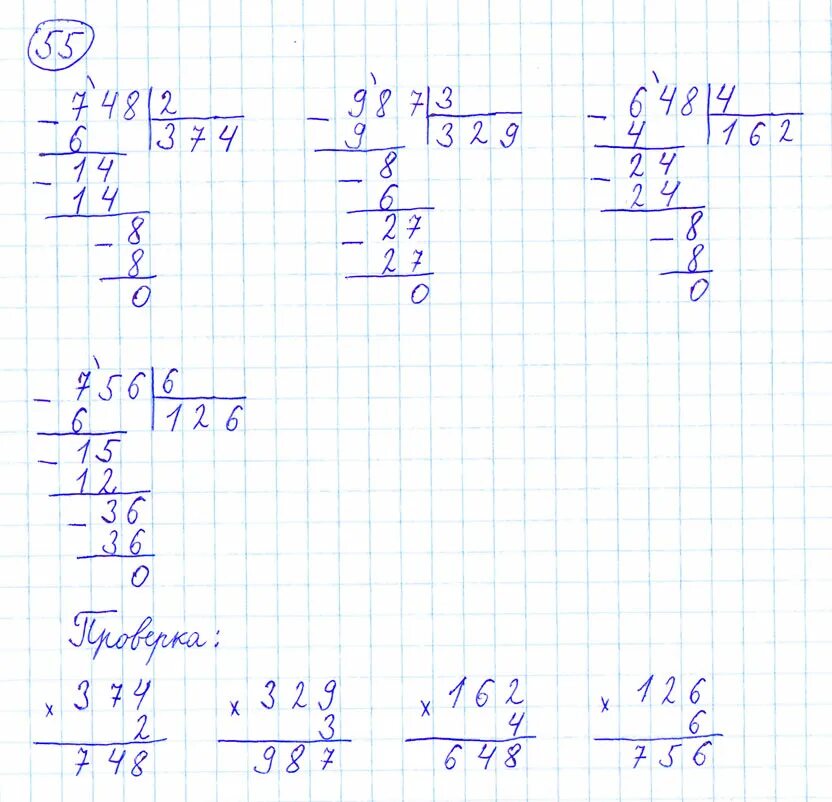 55
748 | 2
- 6 | 374
- 14
14
- 8
8
0
987 | 3
- 9 | 329
- 8
6
- 27
27
0
648 | 4
- 4 | 162
- 24
24
- 8
8
0
756 | 6
- 6 | 126
- 15
12
- 36
36
0
Проверка:
x 374
2
748
x 329
3
987
x 162
4
648
x 126
6
756